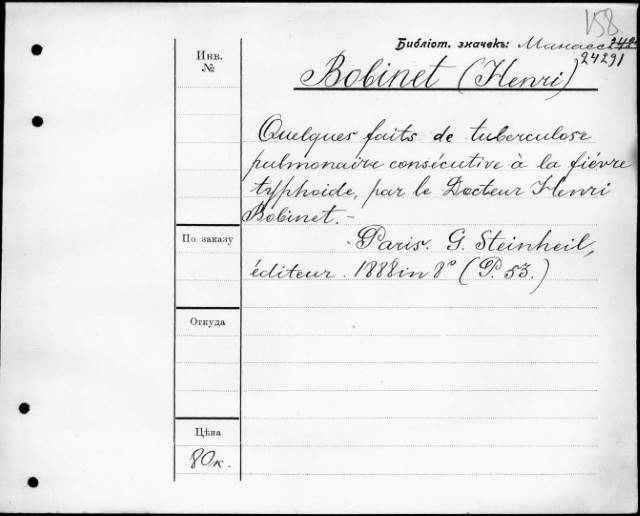 158.
Библіот. значекъ: Манасс
24291
Инв.
№
Bobinet (Henri)
Quelques faits de tuberculose
pulmonaire consécutive à la fiévre
typhoide, par le Docteur Henri
Bobinet. –
По заказу
- Paris. G. Steinheil,
éditeur. 1888 in 8° (P. 53.)
Откуда
Цѣна
80 к.